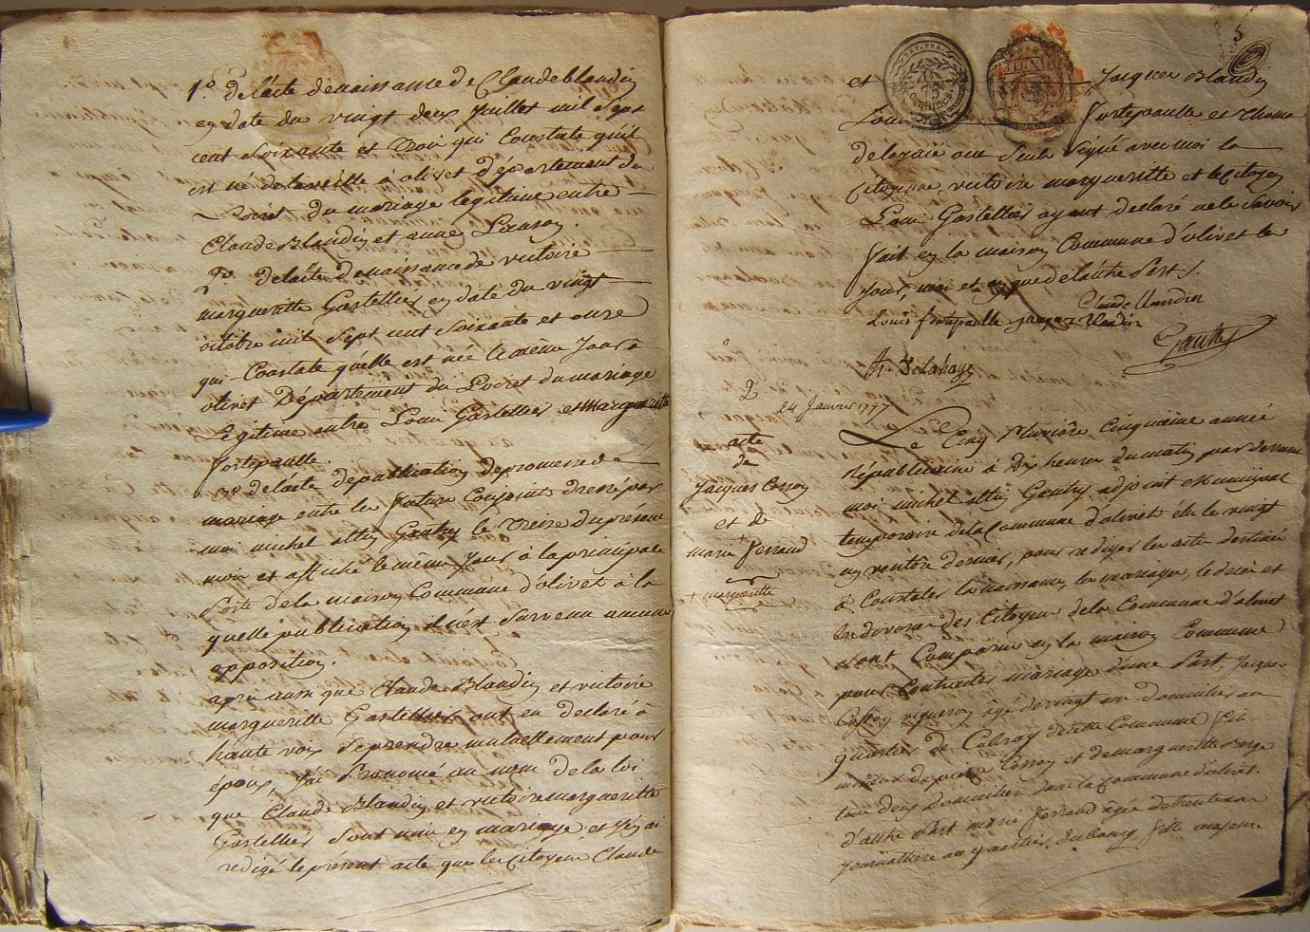 1.º De l'acte de naissance de Claude blandin
en date du vingt deux Juillet mil Sept
cent Soixante et Trois qui Constate qu'il
est né de la veille à olivet département du
Loiret du mariage legitime entre
Claude Blandin et anne
2º de l'acte de naissance de victoire
margueritte Gastellier en date du vingt
octobre mil Sept cent Soixante et onze
qui Constate quelle est née le même Jour à
olivet Département du Loiret du mariage
legitime entre Louis Gastellier et Marguerite
fortepaulle.
3º de l'acte de publication de promesse de
mariage entre les futurs Conjoints dressé par
moi michel Gautry le Treize du présent
mois et affiché le même Jour à la principale
Porte de la maison Commune d'olivet à la
quelle publication il n'est Survenu aucune
opposition.
après aussi que Claude Blandin et victoire
margueritte Gastellier ont eu declaré à
haute voix Se prendre mutuellement pour
époux, J'ai Prononcé au nom de la loi
que Claude Blandin et victoire margueritte
Gastellier Sont unis en mariage et J'en ai
redigé le présent acte que les Citoyens Claude
5
et Jacques Blandin
Louis fortepaulle et
delahaie ont Seuls Signé avec moi la
Citoyenne victoire margueritte et le Citoyen
Louis Gastellier ayant declaré ne le Savoir
fait en la maison Commune d'olivet les
Jour, mois et an que de l'autre Part
Claude blandin
Louis fortepaulle Jacques blandin
Gautry
Delahaye
2
24 Janvier 1797
acte
de
Jacques Cossoy
et de
marie + ferrand
+ margueritte
Le Cinq Pluviôse Cinquieme année
Républicaine à Dix heures du matin par devant
moi michel Gautry adjoint municipal
temporaire de la Commune d'olivet élu le vingt
un ventôse dernier, pour rediger les actes destinés
à Constater les naissances, les mariages, les décès et
les divorces des Citoyens de la Commune d'olivet
sont Comparus en la maison Commune
pour Contracter mariage d'une Part, Jacques
Cossoy vigneron agé de vingt un ans domicilié au
quartier de de cette Commune fils
mineur de Cossoy et de margueritte
tous deux Domiciliés dans la Commune d'olivet.
d'autre Part marie ferrand agée de trente ans
Journalliere au quartier du bourg fille majeure